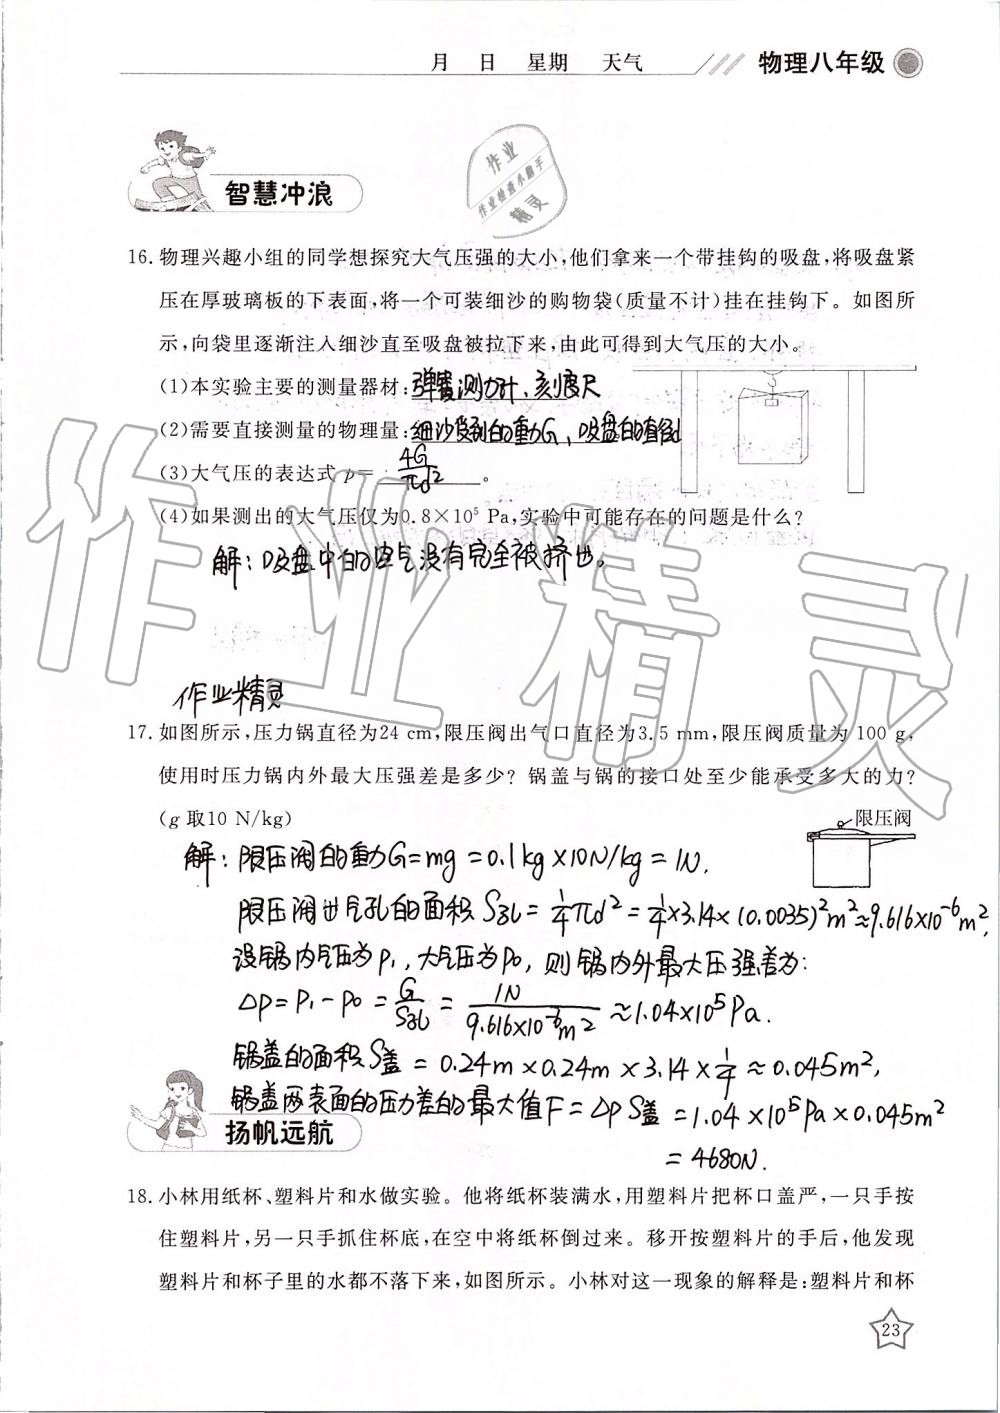 月 日 星期 天气 物理八年级
作业
作业检查小助手
精灵
智慧冲浪
16. 物理兴趣小组的同学想探究大气压强的大小,他们拿来一个带挂钩的吸盘,将吸盘紧
压在厚玻璃板的下表面,将一个可装细沙的购物袋(质量不计)挂在挂钩下。如图所
示,向袋里逐渐注入细沙直至吸盘被拉下来,由此可得到大气压的大小。
(1)本实验主要的测量器材:弹簧测力计、刻度尺
(2)需要直接测量的物理量:细沙受到的重力G,吸盘的直径d
(3)大气压的表达式 p= 4G/πd² 。
(4)如果测出的大气压仅为0.8×10⁵ Pa,实验中可能存在的问题是什么?
解:吸盘中的空气没有完全被挤出。
作业精灵
作业精灵
17. 如图所示,压力锅直径为24 cm,限压阀出气口直径为3.5 mm,限压阀质量为 100 g,
使用时压力锅内外最大压强差是多少? 锅盖与锅的接口处至少能承受多大的力?
(g 取10 N/kg)
限压阀
解:限压阀的重力G=mg=0.1kg×10N/kg=1N,
限压阀出气孔的面积 S孔=1/4πd²=1/4×3.14×(0.0035)²m²≈9.616×10⁻⁶m²,
设锅内气压为P₁,大气压为P₀,则锅内外最大压强差为:
△P=P₁-P₀=G/S孔=1N/9.616×10⁻⁶m²≈1.04×10⁵Pa.
锅盖的面积S盖=0.24m×0.24m×3.14×1/4≈0.045m²,
锅盖两表面的压力差的最大值F=△PS盖=1.04×10⁵Pa×0.045m²
=4680N.
扬帆远航
18. 小林用纸杯、塑料片和水做实验。他将纸杯装满水,用塑料片把杯口盖严,一只手按
住塑料片,另一只手抓住杯底,在空中将纸杯倒过来。移开按塑料片的手后,他发现
塑料片和杯子里的水都不落下来,如图所示。小林对这一现象的解释是:塑料片和杯
23